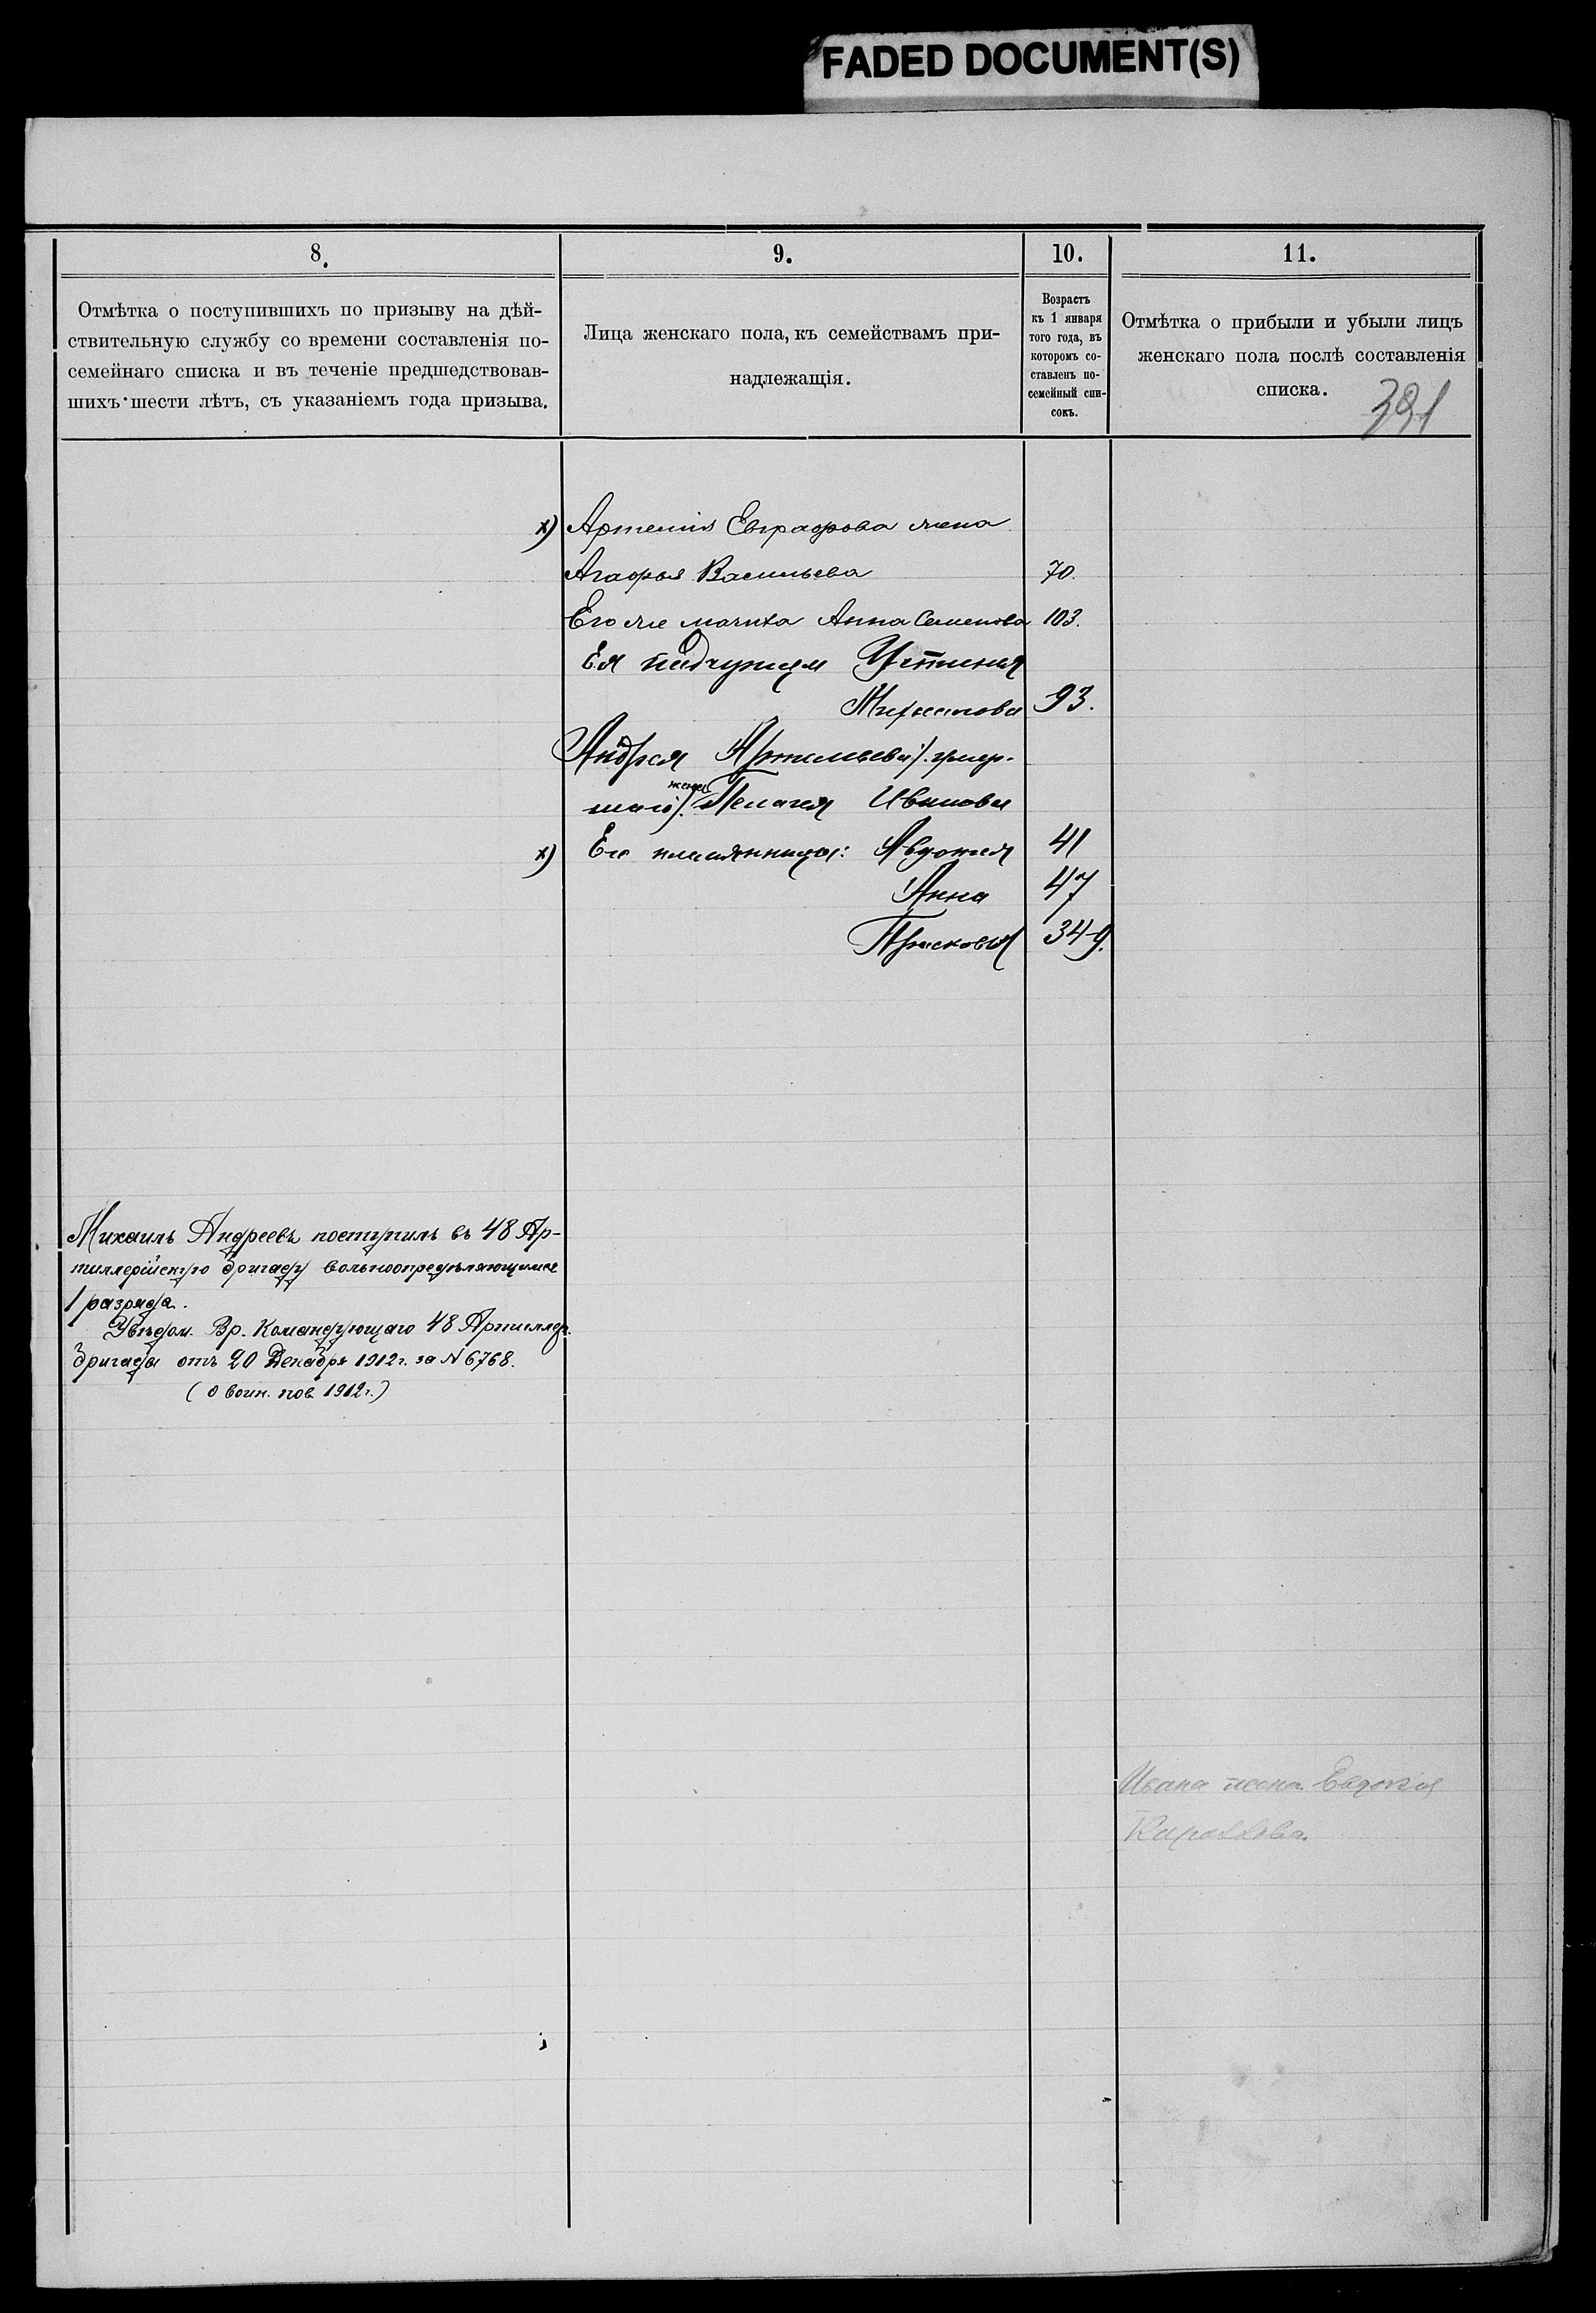 FADED DOCUMENT(S)
8.
Отмѣтка о поступившихъ по призыву на дѣй-
ствительную службу со времени составленія по-
семейнаго списка и въ теченіе предшедствовав-
шихъ шести лѣтъ, съ указаніемъ года призыва.
9.
Лица женскаго пола, къ семействамъ при-
надлежащія.
10.
Возрастъ
къ 1 января
того года, въ
которомъ со-
ставленъ по-
семейный спи-
сокъ.
11.
Отмѣтка о прибыли и убыли лицъ
женскаго пола послѣ составленія
списка.
391
х) Артемія Евграфова жена
Агафья Васильева 70.
Его же мачиха Анна Семенова 103.
Ея падчерицы Устинья
Михаилова 93.
Андрея Артемьева /. умер-
шаго /. жена Пелагея Иванова
х) Его племянницы: Авдотья 41
Анна 47
Прасковья 34-9.
Михаилъ Андреевъ поступилъ въ 48 Ар-
тиллерійскую бригаду вольноопредѣляющимся
1 разряда.
Увѣдом. Вр. Командующаго 48 Артиллер.
бригады отъ 20 Декабря 1912 г. за № 6768.
(о воин. пов. 1912 г.)
Ивана жена Евдокія